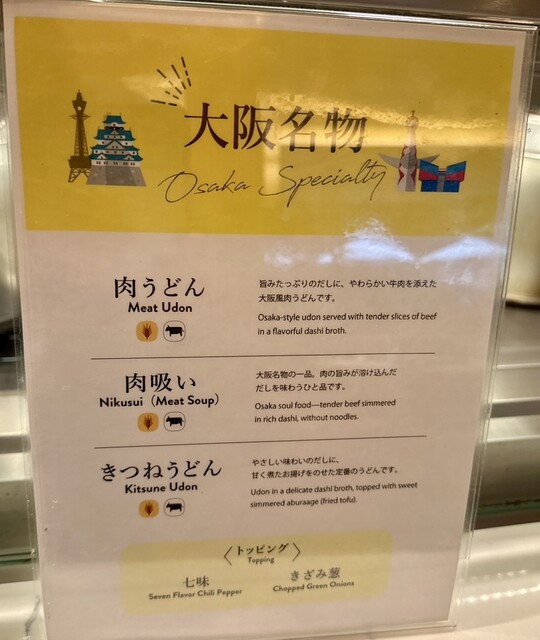 大阪名物
Osaka Specialty
肉うどん
Meat Udon
旨みたっぷりのだしに、やわらかい牛肉を添えた
大阪風肉うどんです。
Osaka-style udon served with tender slices of beef
in a flavorful dashi broth.
肉吸い
Nikusui (Meat Soup)
大阪名物の一品。肉の旨みが溶け込んだ
だしを味わうひと品です。
Osaka soul food—tender beef simmered
in rich dashi, without noodles.
きつねうどん
Kitsune Udon
やさしい味わいのだしに、
甘く煮たお揚げをのせた定番のうどんです。
Udon in a delicate dashi broth, topped with sweet
simmered aburaage (fried tofu).
〈トッピング〉
Topping
七味
Seven Flavor Chili Pepper
きざみ葱
Chopped Green Onions